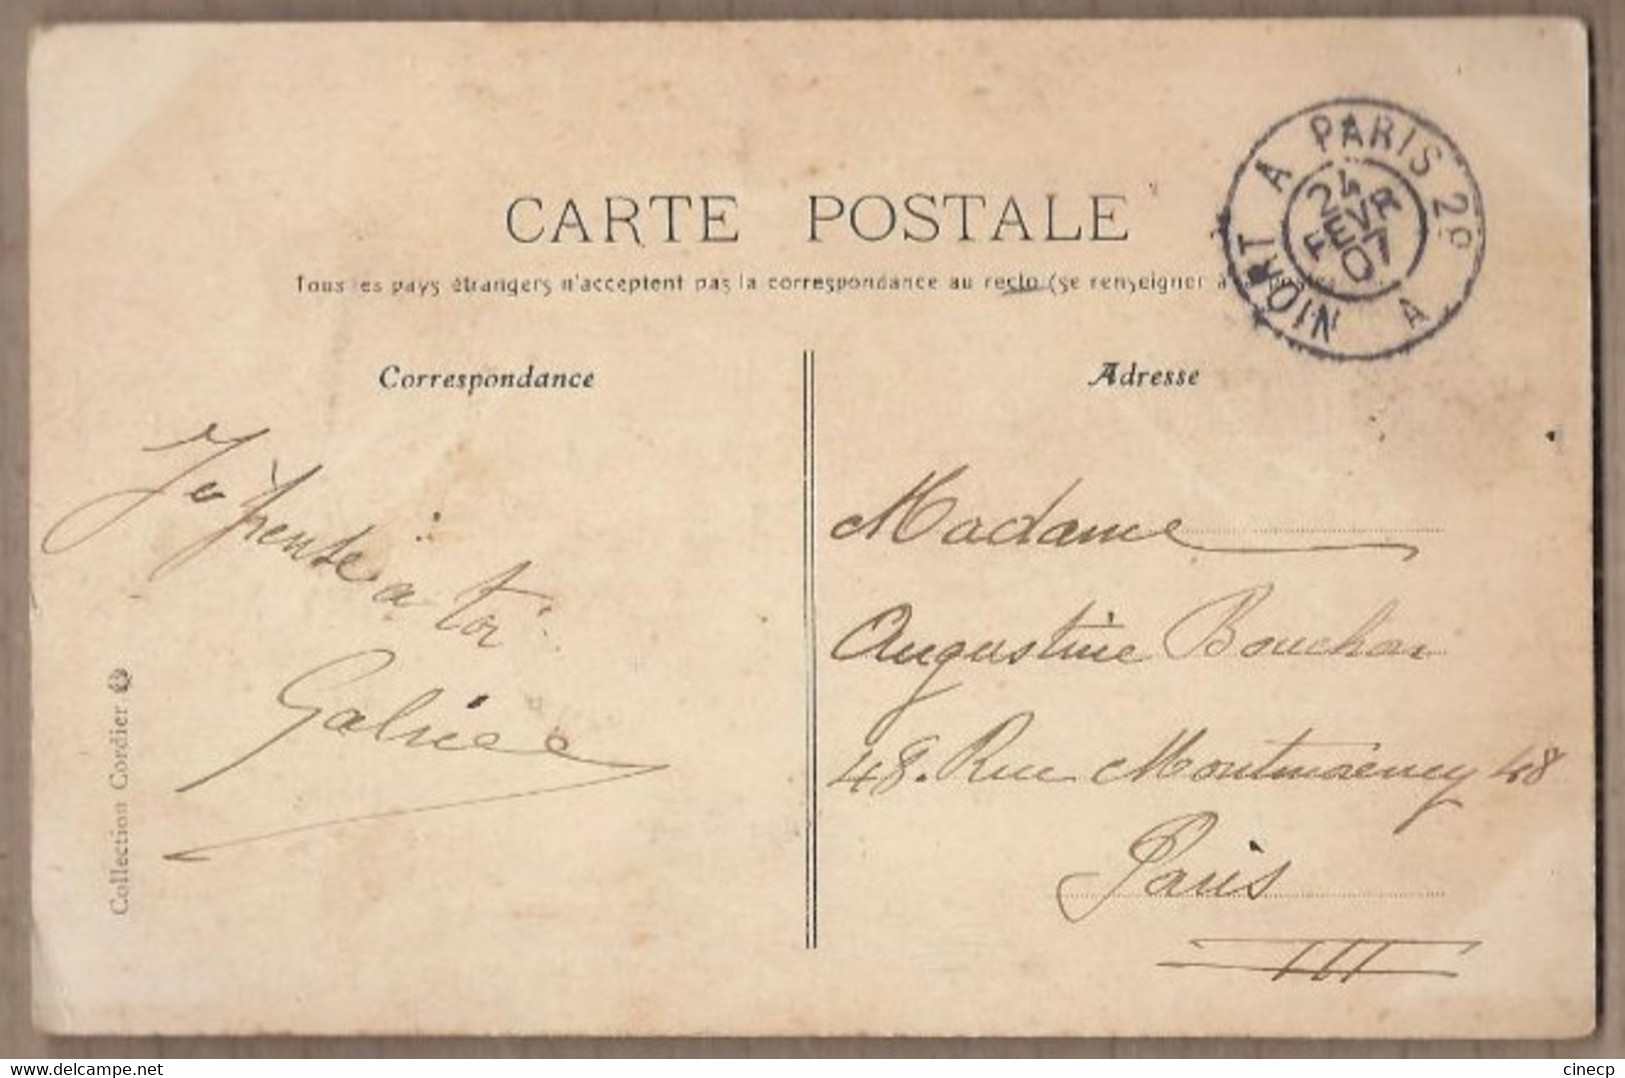 CARTE POSTALE
Tous les pays étrangers n'acceptent pas la correspondance au recto (se renseigner à la poste)
NIORT A PARIS 2º A
24
FEVR
07
Correspondance
Adresse
Je pense à toi
Madame
Augustine
48. Rue Montmorency 48
Paris
III
Collection Cordier
Delcampe.net
cinecp